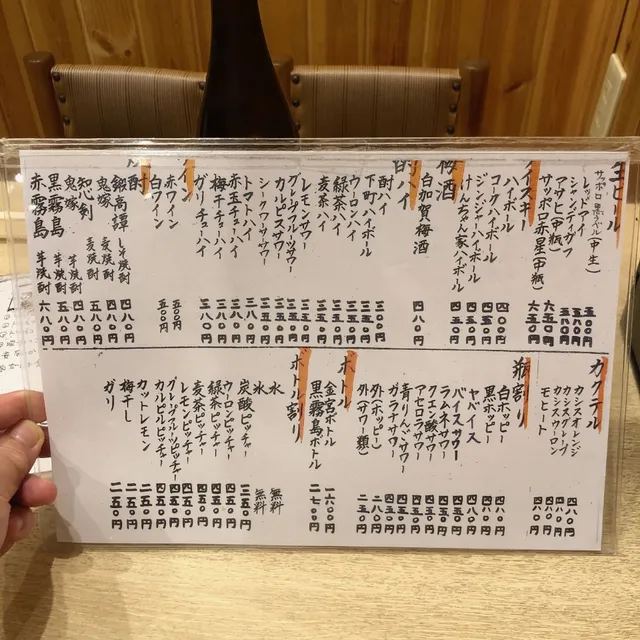 生ビール
サッポロ黒ラベル(中生) 五五〇円
レッドアイ 五五〇円
シャンディガフ 五五〇円
アサヒ(中瓶) 六五〇円
サッポロ赤星(中瓶) 六五〇円
ハイボール 四〇〇円
コークハイボール 四五〇円
ジンジャーハイボール 四五〇円
けんちゃん家ハイボール 四五〇円
梅酒
白加賀梅酒 四八〇円
酎ハイ
酎ハイ 三〇〇円
下町ハイボール 三五〇円
ウーロンハイ 三五〇円
緑茶ハイ 三五〇円
麦茶ハイ 三五〇円
レモンサワー 三五〇円
グレープフルーツサワー 三五〇円
カルピスサワー 三五〇円
シークワーサワー 三五〇円
トマトハイ 三八〇円
赤玉チューハイ 三八〇円
梅干チューハイ 三八〇円
ガリチューハイ 三八〇円
赤ワイン 五〇〇円
白ワイン 五〇〇円
鍛高譚 しそ焼酎 四八〇円
鬼嫁 麦焼酎 四八〇円
知心剣 麦焼酎 五八〇円
鬼嫁 芋焼酎 四八〇円
黒霧島 芋焼酎 五八〇円
赤霧島 芋焼酎 六八〇円
カクテル
カシスオレンジ 四八〇円
カシスグレープ 四八〇円
カシスウーロン 四八〇円
モヒート 四八〇円
瓶割り
白ホッピー 四八〇円
黒ホッピー 四八〇円
ヤバイス 四八〇円
バイスサワー 四五〇円
ラムネサワー 四五〇円
クエン酸サワー 四五〇円
アセロラサワー 四五〇円
青りんごサワー 四五〇円
ガラナサワー 四五〇円
外(ホッピー) 二八〇円
外(サワー類) 二五〇円
ボトル
金宮ボトル 一六〇〇円
黒霧島ボトル 二七〇〇円
ボトル割り
水 無料
氷 無料
炭酸ピッチャー 三五〇円
ウーロンピッチャー 四五〇円
緑茶ピッチャー 四五〇円
麦茶ピッチャー 四五〇円
レモンピッチャー 四五〇円
グレープフルーツピッチャー 四五〇円
カルピスピッチャー 四五〇円
カットレモン 二五〇円
梅干し 二五〇円
ガリ 二五〇円